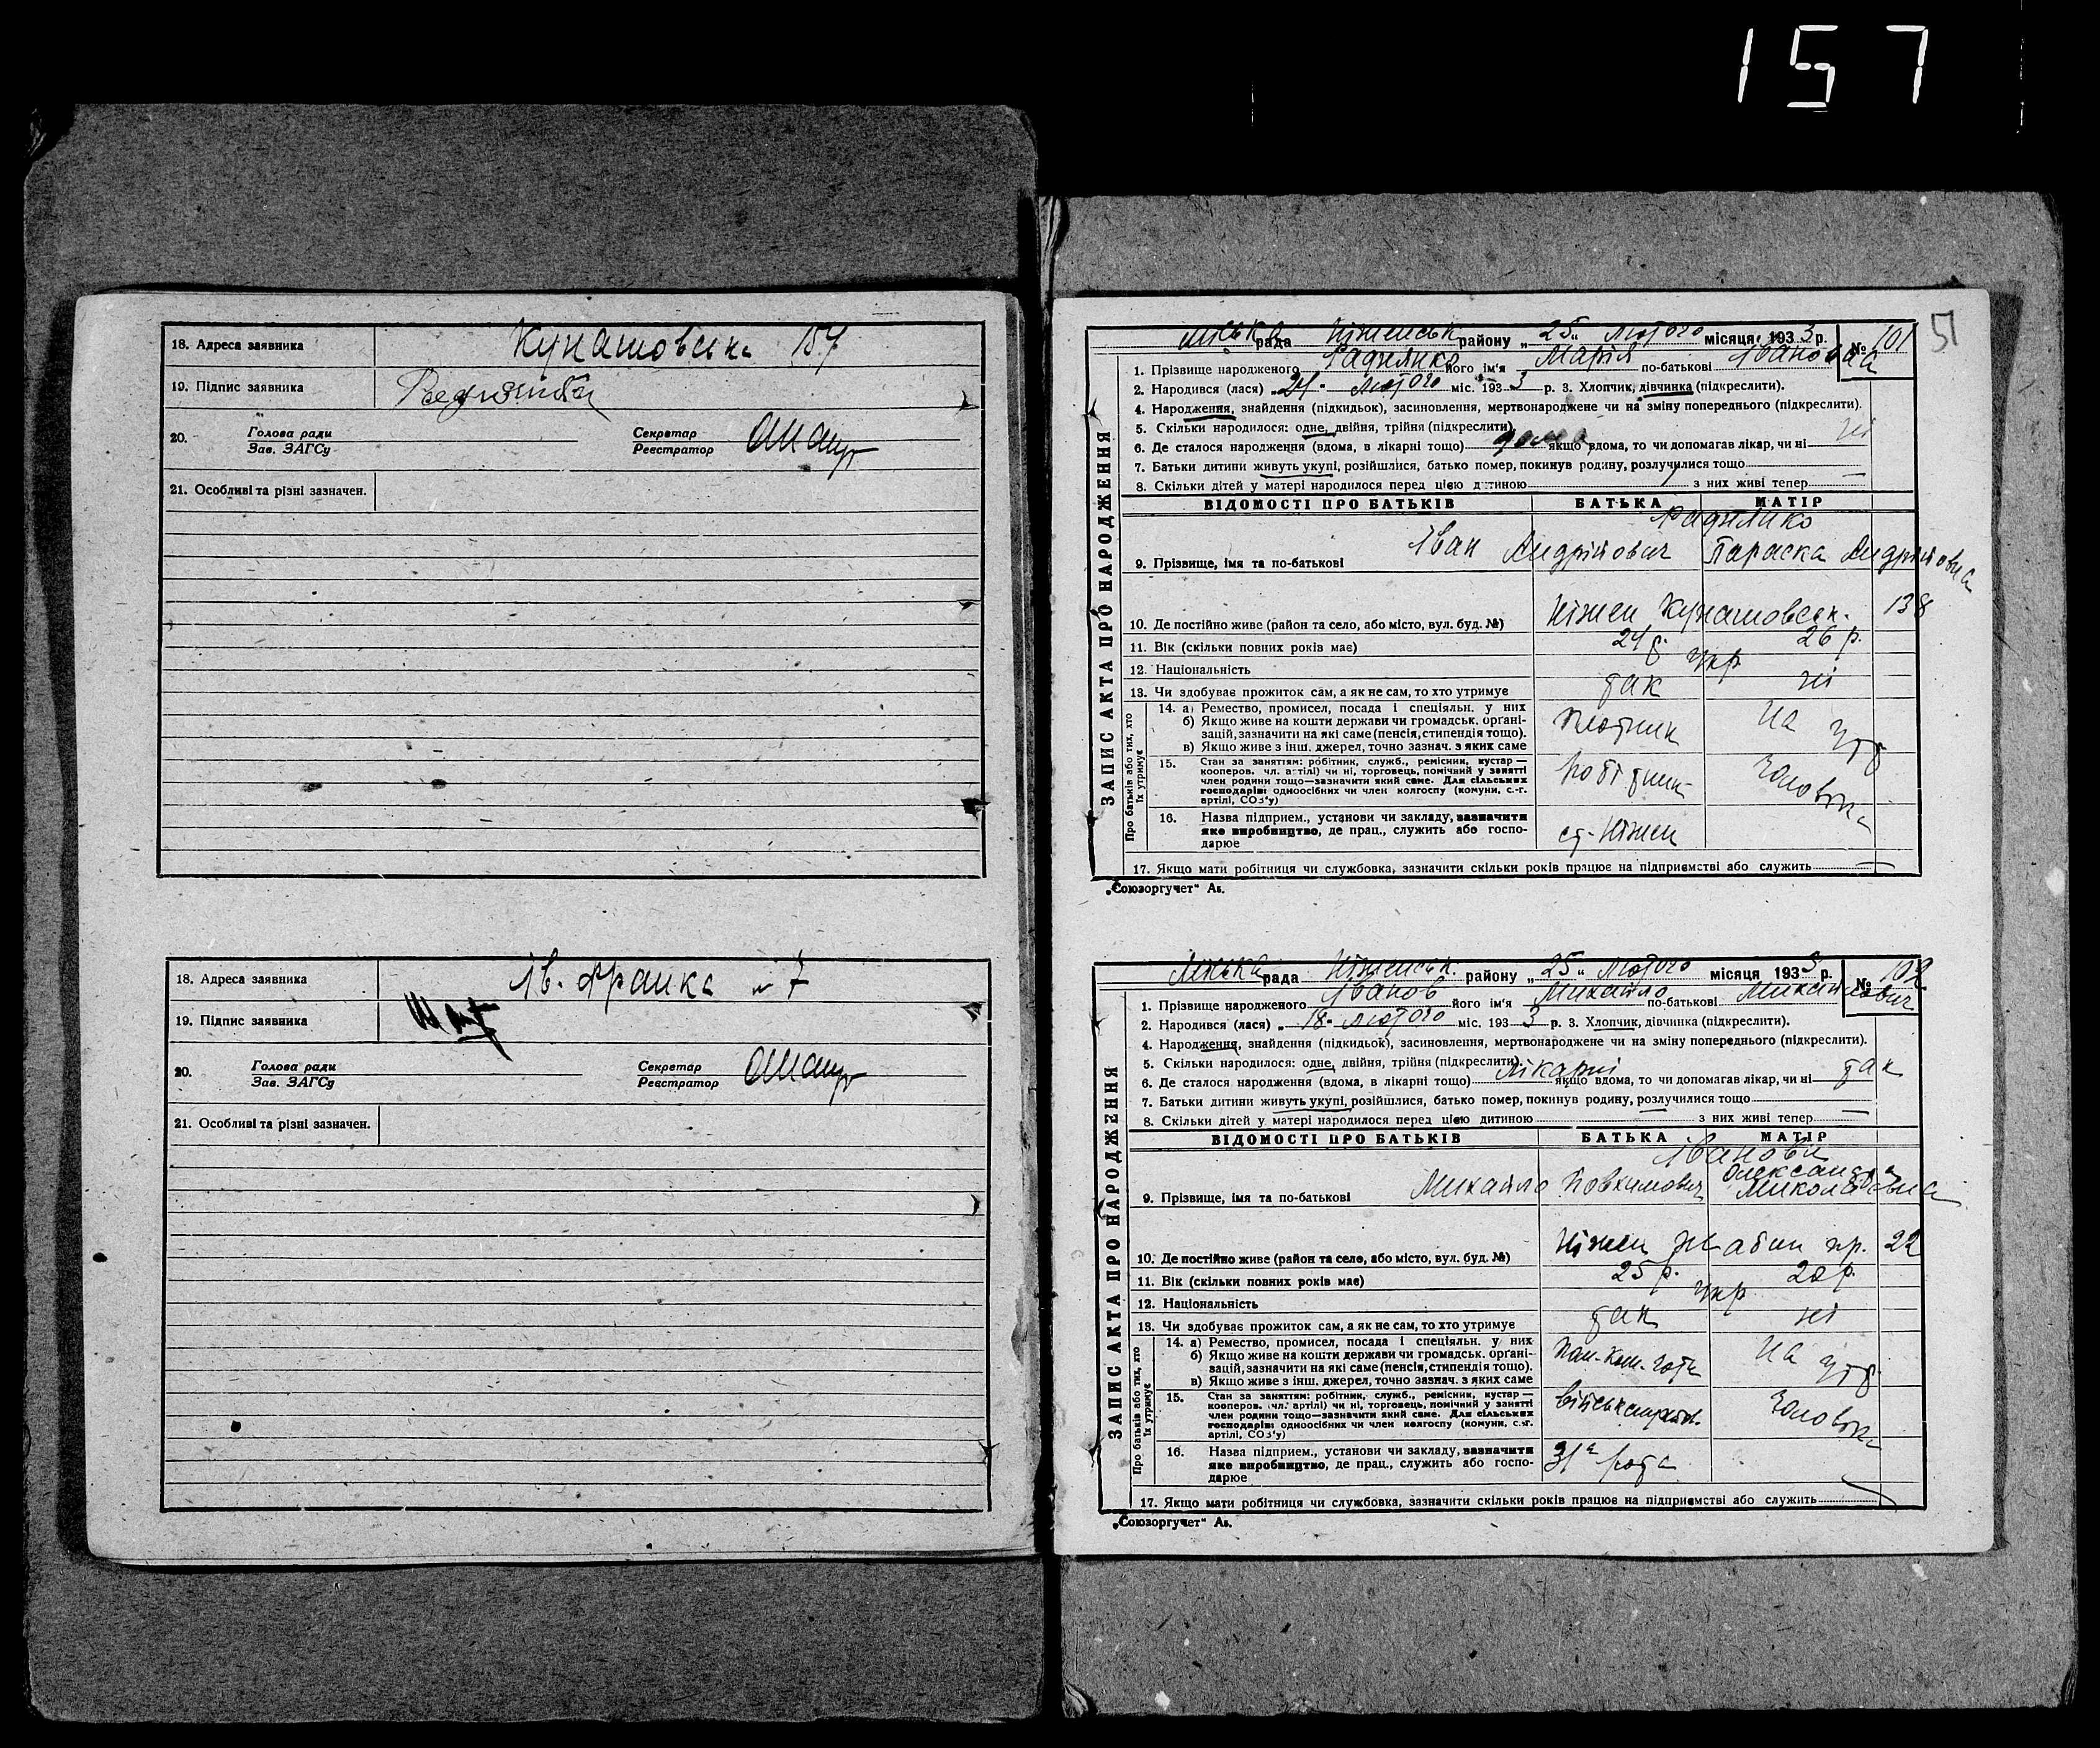 157
18. Адреса заявника Кунашовська 157
19. Підпис заявника
20. Голова ради Секретар
Зав. ЗАГСу Реєстратор
21. Особливі та різні зазначен.
18. Адреса заявника Ів. Франка № 7
19. Підпис заявника
20. Голова ради Секретар
Зав. ЗАГСу Реєстратор
21. Особливі та різні зазначен.
51
ЗАПИС АКТА ПРО НАРОДЖЕННЯ
Міська рада Ніженськ району „25" Лютого місяця 1933 р. № 101
1. Прізвище народженого його ім'я Марія по-батькові Івановна
2. Народився (лася) „ 24 " Лютого міс. 1933 р. 3. Хлопчик, дівчинка (підкреслити).
4. Народження, знайдення (підкидьок), засиновлення, мертвонароджене чи на зміну попереднього (підкреслити).
5. Скільки народилося: одне, двійня, трійня (підкреслити)
6. Де сталося народження (вдома, в лікарні тощо) дома якщо вдома, то чи допомагав лікар, чи ні ні
7. Батьки дитини живуть укупі, розійшлися, батько помер, покинув родину, розлучилися тощо
8. Скільки дітей у матері народилося перед цією дитиною з них живі тепер
ВІДОМОСТІ ПРО БАТЬКІВ БАТЬКА МАТІР
9. Прізвище, імя та по-батькові Іван Андрійович Параска Андрійовна
10. Де постійно живе (район та село, або місто, вул. буд. №) Ніжен Кунашовськ. 138
11. Вік (скільки повних років має) 24 р. 26 р.
12. Національність Укр
13. Чи здобуває прожиток сам, а як не сам, то хто утримує так ні
Про батьків або тих, хто їх утримує
14. а) Ремество, промисел, посада і спеціяльн. у них Плотник На утр
б) Якщо живе на кошти держави чи громадськ. орґані-
зацій, зазначити на які саме (пенсія, стипендія тощо).
в) Якщо живе з інш. джерел, точно зазнач. з яких саме
15. Стан за заняттям: робітник, служб., ремісник, кустар — Робітник Чоловіка
кооперов. чл. артілі) чи ні, торговець, помічний у занятті
член родини тощо—зазначити який саме. Для сільських
господарів: одноосібних чи член колгоспу (комуни, с.-г.
артілі, СОЗ'у)
16. Назва підприєм., установи чи закладу, зазначити ст. Ніжен
яке виробництво, де прац., служить або госпо-
дарює
17. Якщо мати робітниця чи службовка, зазначити скільки років працює на підприємстві або служить
„Союзоргучет" Ак.
ЗАПИС АКТА ПРО НАРОДЖЕННЯ
Міська рада Ніженськ. району „25" Лютого місяця 1933 р. № 102
1. Прізвище народженого Іванов його ім'я Михайло по-батькові Михайлович
2. Народився (лася) „ 18 " Лютого міс. 1933 р. 3. Хлопчик, дівчинка (підкреслити).
4. Народження, знайдення (підкидьок), засиновлення, мертвонароджене чи на зміну попереднього (підкреслити).
5. Скільки народилося: одне, двійня, трійня (підкреслити)
6. Де сталося народження (вдома, в лікарні тощо) Лікарні якщо вдома, то чи допомагав лікар, чи ні так
7. Батьки дитини живуть укупі, розійшлися, батько помер, покинув родину, розлучилися тощо
8. Скільки дітей у матері народилося перед цією дитиною з них живі тепер
ВІДОМОСТІ ПРО БАТЬКІВ БАТЬКА МАТІР
Іванови
9. Прізвище, імя та по-батькові Михайло Олександра Миколаївна
10. Де постійно живе (район та село, або місто, вул. буд. №) Ніжен 22
11. Вік (скільки повних років має) 25 р. 20 р.
12. Національність Укр
13. Чи здобуває прожиток сам, а як не сам, то хто утримує так ні
Про батьків або тих, хто їх утримує
14. а) Ремество, промисел, посада і спеціяльн. у них Пом. ком. роти На утр
б) Якщо живе на кошти держави чи громадськ. орґані-
зацій, зазначити на які саме (пенсія, стипендія тощо).
в) Якщо живе з інш. джерел, точно зазнач. з яких саме
15. Стан за заняттям: робітник, служб., ремісник, кустар — Чоловіка
кооперов. чл. артілі) чи ні, торговець, помічний у занятті
член родини тощо—зазначити який саме. Для сільських
господарів: одноосібних чи член колгоспу (комуни, с.-г.
артілі, СОЗ'у)
16. Назва підприєм., установи чи закладу, зазначити 31а рота
яке виробництво, де прац., служить або госпо-
дарює
17. Якщо мати робітниця чи службовка, зазначити скільки років працює на підприємстві або служить
„Союзоргучет" Ак.